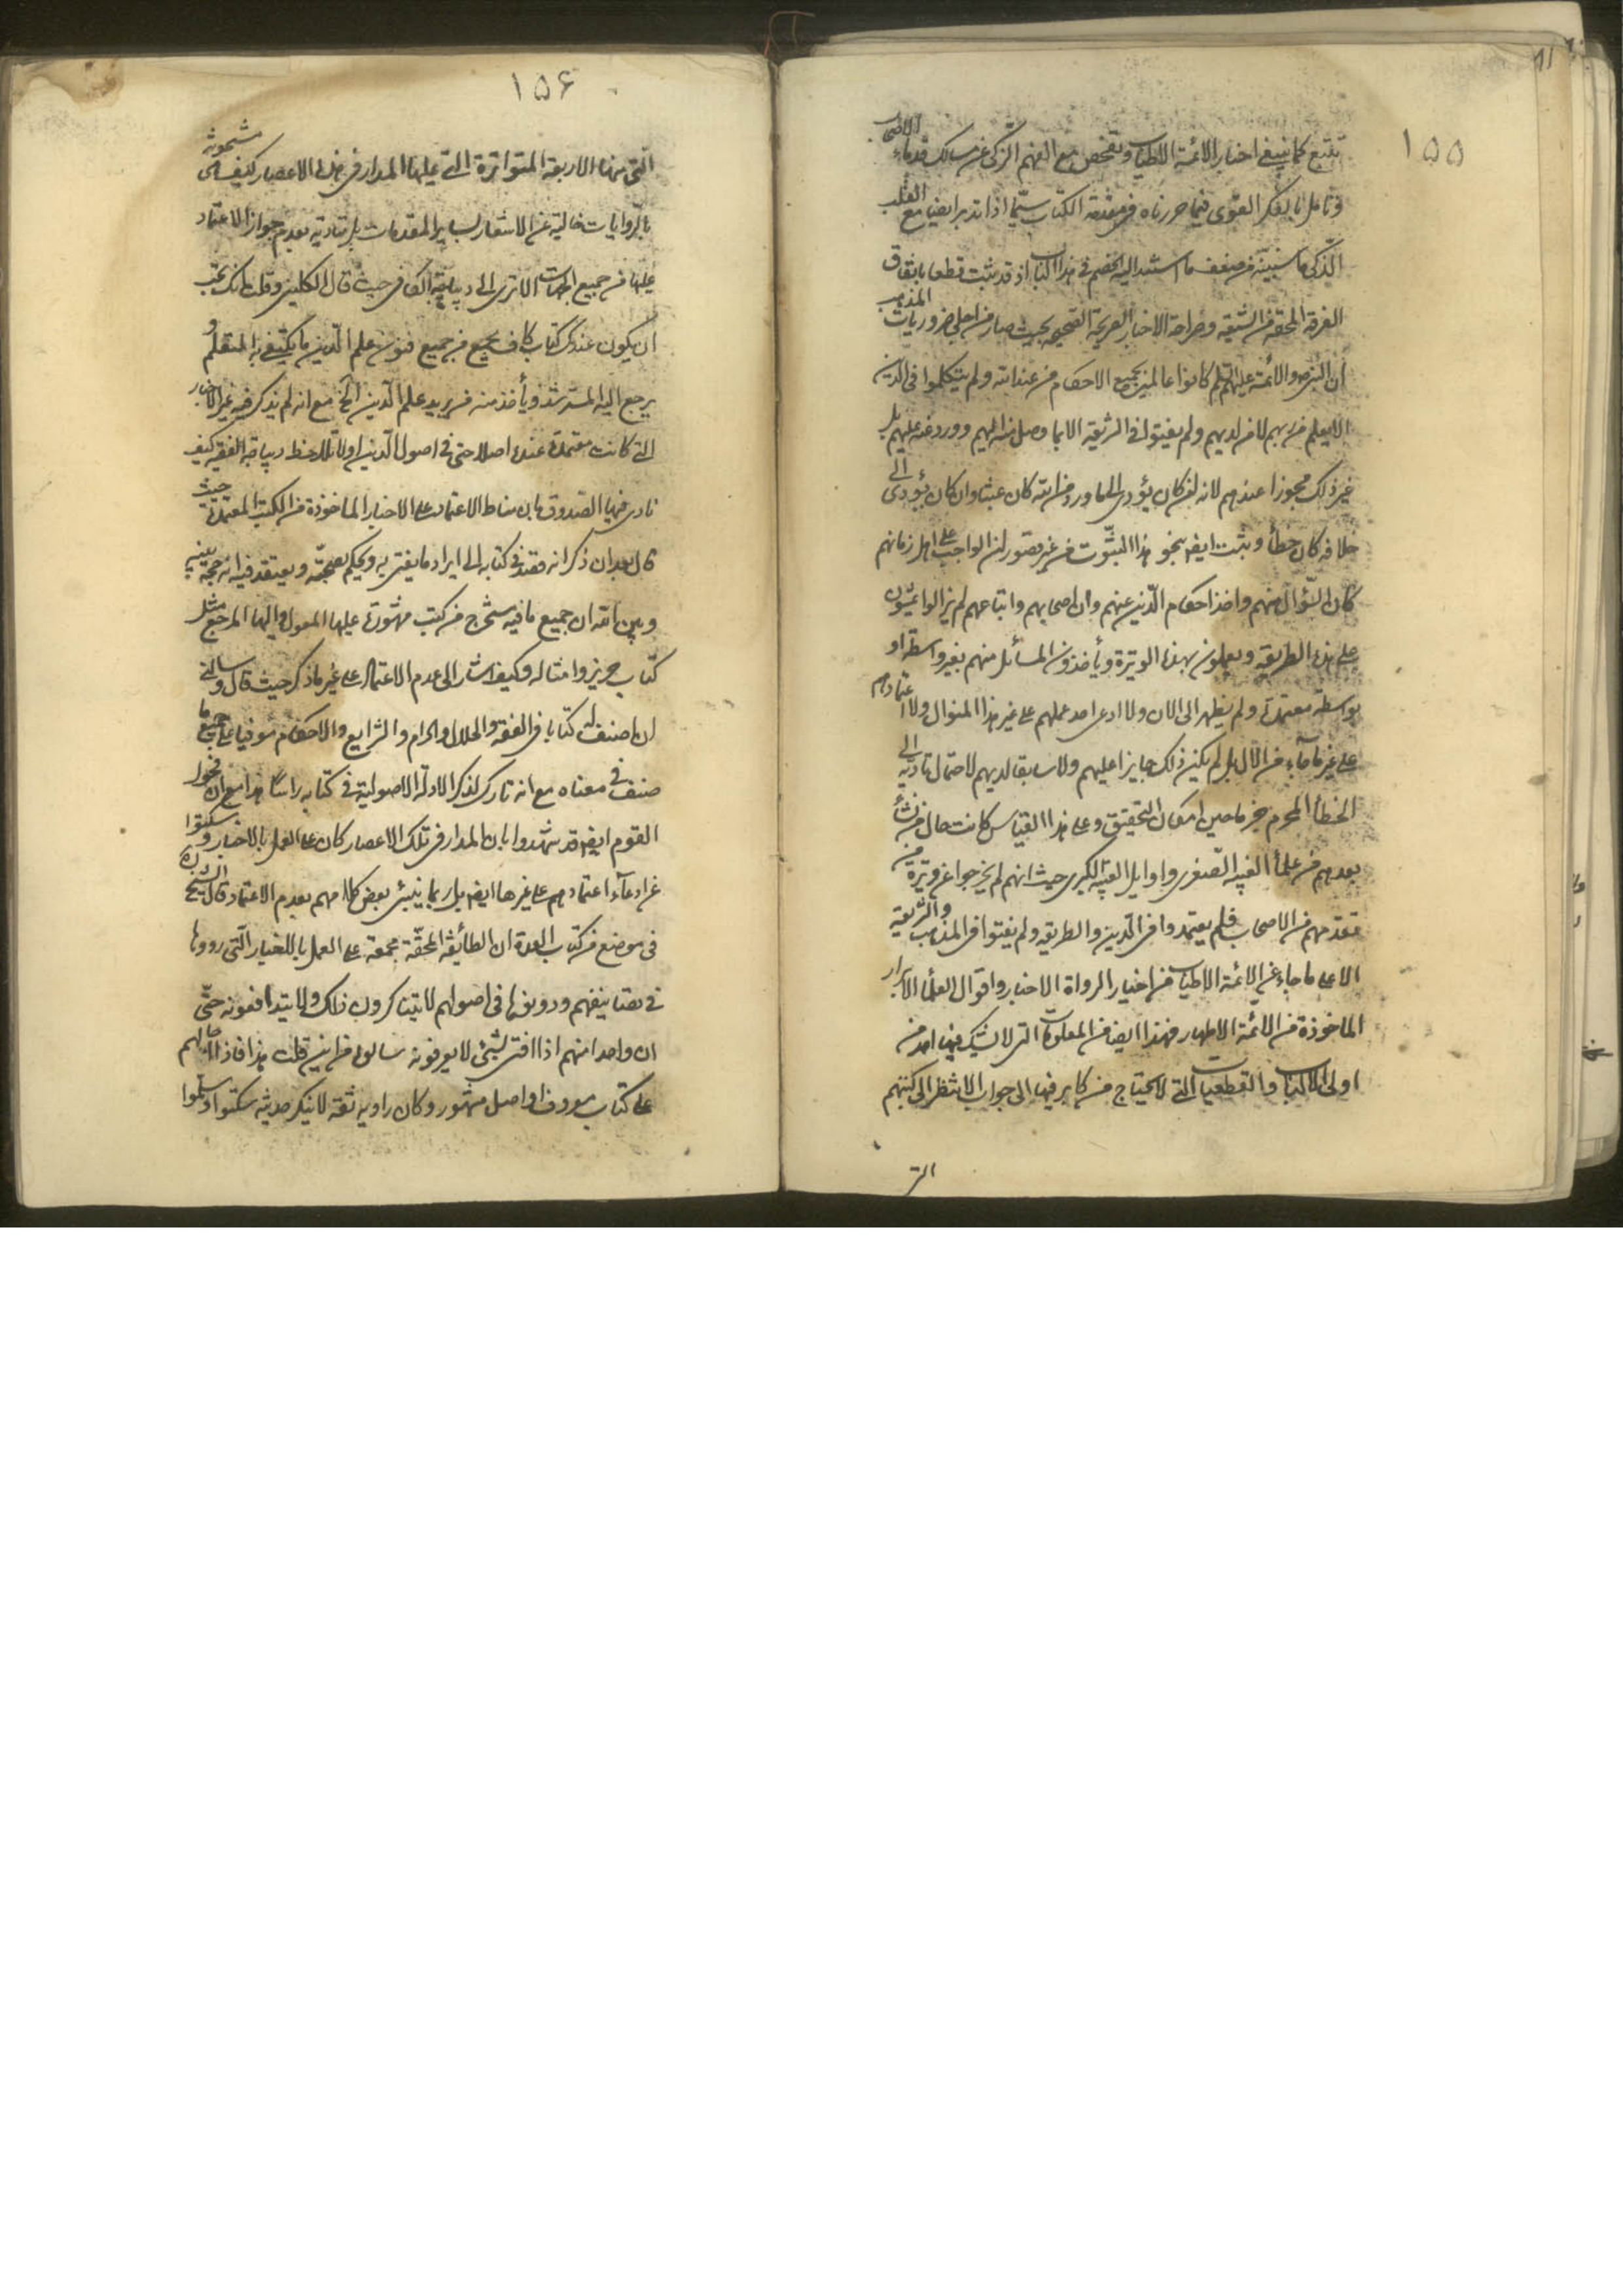 ١٥٥
تتبع كما ينبغي اخبار الائمة الاطياب وتفحص مع الفهم الزكى عن مسالك قدماء الاصحاب
وتامل بالفكر القوى فيما حررناه فى مقدمة الكتاب سيّما اذا تدبر ايضا مع القلب
الذكى ما سنبيّنه من ضعف ما استند اليه الخصم فى هذا الكتاب اذ قد ثبت قطعا باتفاق
الفرقة المحقة من الشيعة وصراحة الاخبار الصريحة الصحيحة بحيث صار من اجلى ضروريات المذهب
ان النبى ص والائمة عليهم السّلم كانوا عالمين بجميع الاحكام من عند الله ولم يتكلموا فى الدين
الا بعلم من ربهم لا من لديهم ولم يفتوا فى الشريعة الا بما وصل منه اليهم وورد عنه عليهم بل
غير ذلك مجوزا عندهم لانه ان كان يؤدى الى ما ورد من الله كان عبثا وان كان يؤدى الى
خلافه كان خطأ وثبت ايضا بنحو هذا الثبوت من غير قصور ان الواجب على اهل زمانهم
كان السّؤال منهم واخذ احكام الدّين عنهم وان اصحابهم واتباعهم لم يزالوا يمشون
على هذه الطريقة ويعملون بهذه الوتيرة ويأخذون المسائل منهم بغير واسطة او
بوسطة معتمدة ولم يظهر الى الان ولا ادعى احد عملهم على غير هذا المنوال ولا اعتمادهم
على غير ما جاء من الآل بل لم يكن ذلك جايزا عليهم ولا سابقا لديهم لاحتمال تاديته الى
الخطأ المحرم حين امكان التحقيق وعلى هذا القياس كانت حال من نشأ
بعدهم من علمأ الغيبة الصغرى واوايل الغيبة الكبرى حيث انهم لم يخرجوا عن وتيرة من
تقدمهم من الاصحاب فلم يعتمدوا فى الدين والطريقة ولم يفتوا فى المذهب والشريعة
الا على ما جاء عن الائمة الاطياب من اخبار الرواة الاخيار واقوال العلمأ الابرار
الماخوذة من الائمة الاطهار فهذا ايضا من المعلومات التى لا يشك فيها احد من
اولى الالباب والقطعيات التى لا يحتاج من كابر فيها الى جواب الا تنظر الى كتبهم
التى
١٥۶
التى منها الاربعة المتواترة التى عليها المدار فى هذه الاعصار كيف هى مشحونة
بالروايات خالية عن الاشعار بساير المقدمات بل منادية بعدم جواز الاعتماد
عليها من جميع الجهات الا ترى الى ديباجة الكافى حيث قال الكلينى وقلت انك تحب
ان يكون عندك كتاب كاف يجمع من جميع فنون علم الدّين ما يكتفى به المتعلم و
يرجع اليه المسترشد ويأخذ منه من يريد علم الدّين الخ مع انه لم يذكر فيه غير الاخبار
التى كانت معتمدة عنده اصلا حتى فى اصول الدّين اولا تلاحظ ديباجة الفقيه كيف
نادى فيها الصدوق بان مناط الاعتماد على الاخبار الماخوذة من الكتب المعتمدة حيث
قال بعد ان ذكر انه قصد فى كتابه الى ايراد ما يفتى به ويحكم بصحّته ويعتقد فيه انه حجة بينه
وبين الله ان جميع ما فيه مستخرج من كتب مشهورة عليها المعول واليها المرجع مثل
كتاب حريز وامثاله وكيف اشار الى عدم الاعتماد على غير ما ذكر حيث قال وسالنى
ان اصنف له كتابا فى الفقه والحلال والحرام والشرايع والاحكام موفيا على جميع ما
صنف فى معناه مع انه تارك لذكر الادلة الاصولية فى كتابه راسًا هذا مع ان فحول
القوم ايضا قد شهدوا بان المدار فى تلك الاعصار كان على العمل بالاخبار وسكتوا
عن ادعآء اعتمادهم على غيرها ايضا بل ربما ينبئ بعض كلامهم بعدم الاعتماد قال الشيخ ره
فى موضع من كتاب العدة ان الطائفة المحقّة مجمعة على العمل بالاخبار الّتى رووها
فى تصانيفهم ودونوها فى اصولهم لا يتناكرون ذلك ولا يتدافعونه حتّى
ان واحدا منهم اذا افتى بشئ لا يعرفونه سالوه من اين قلت هذا فاذا احالهم
على كتاب معروف او اصل مشهور وكان راويه ثقة لا ينكر حديثه سكتوا وسلّموا